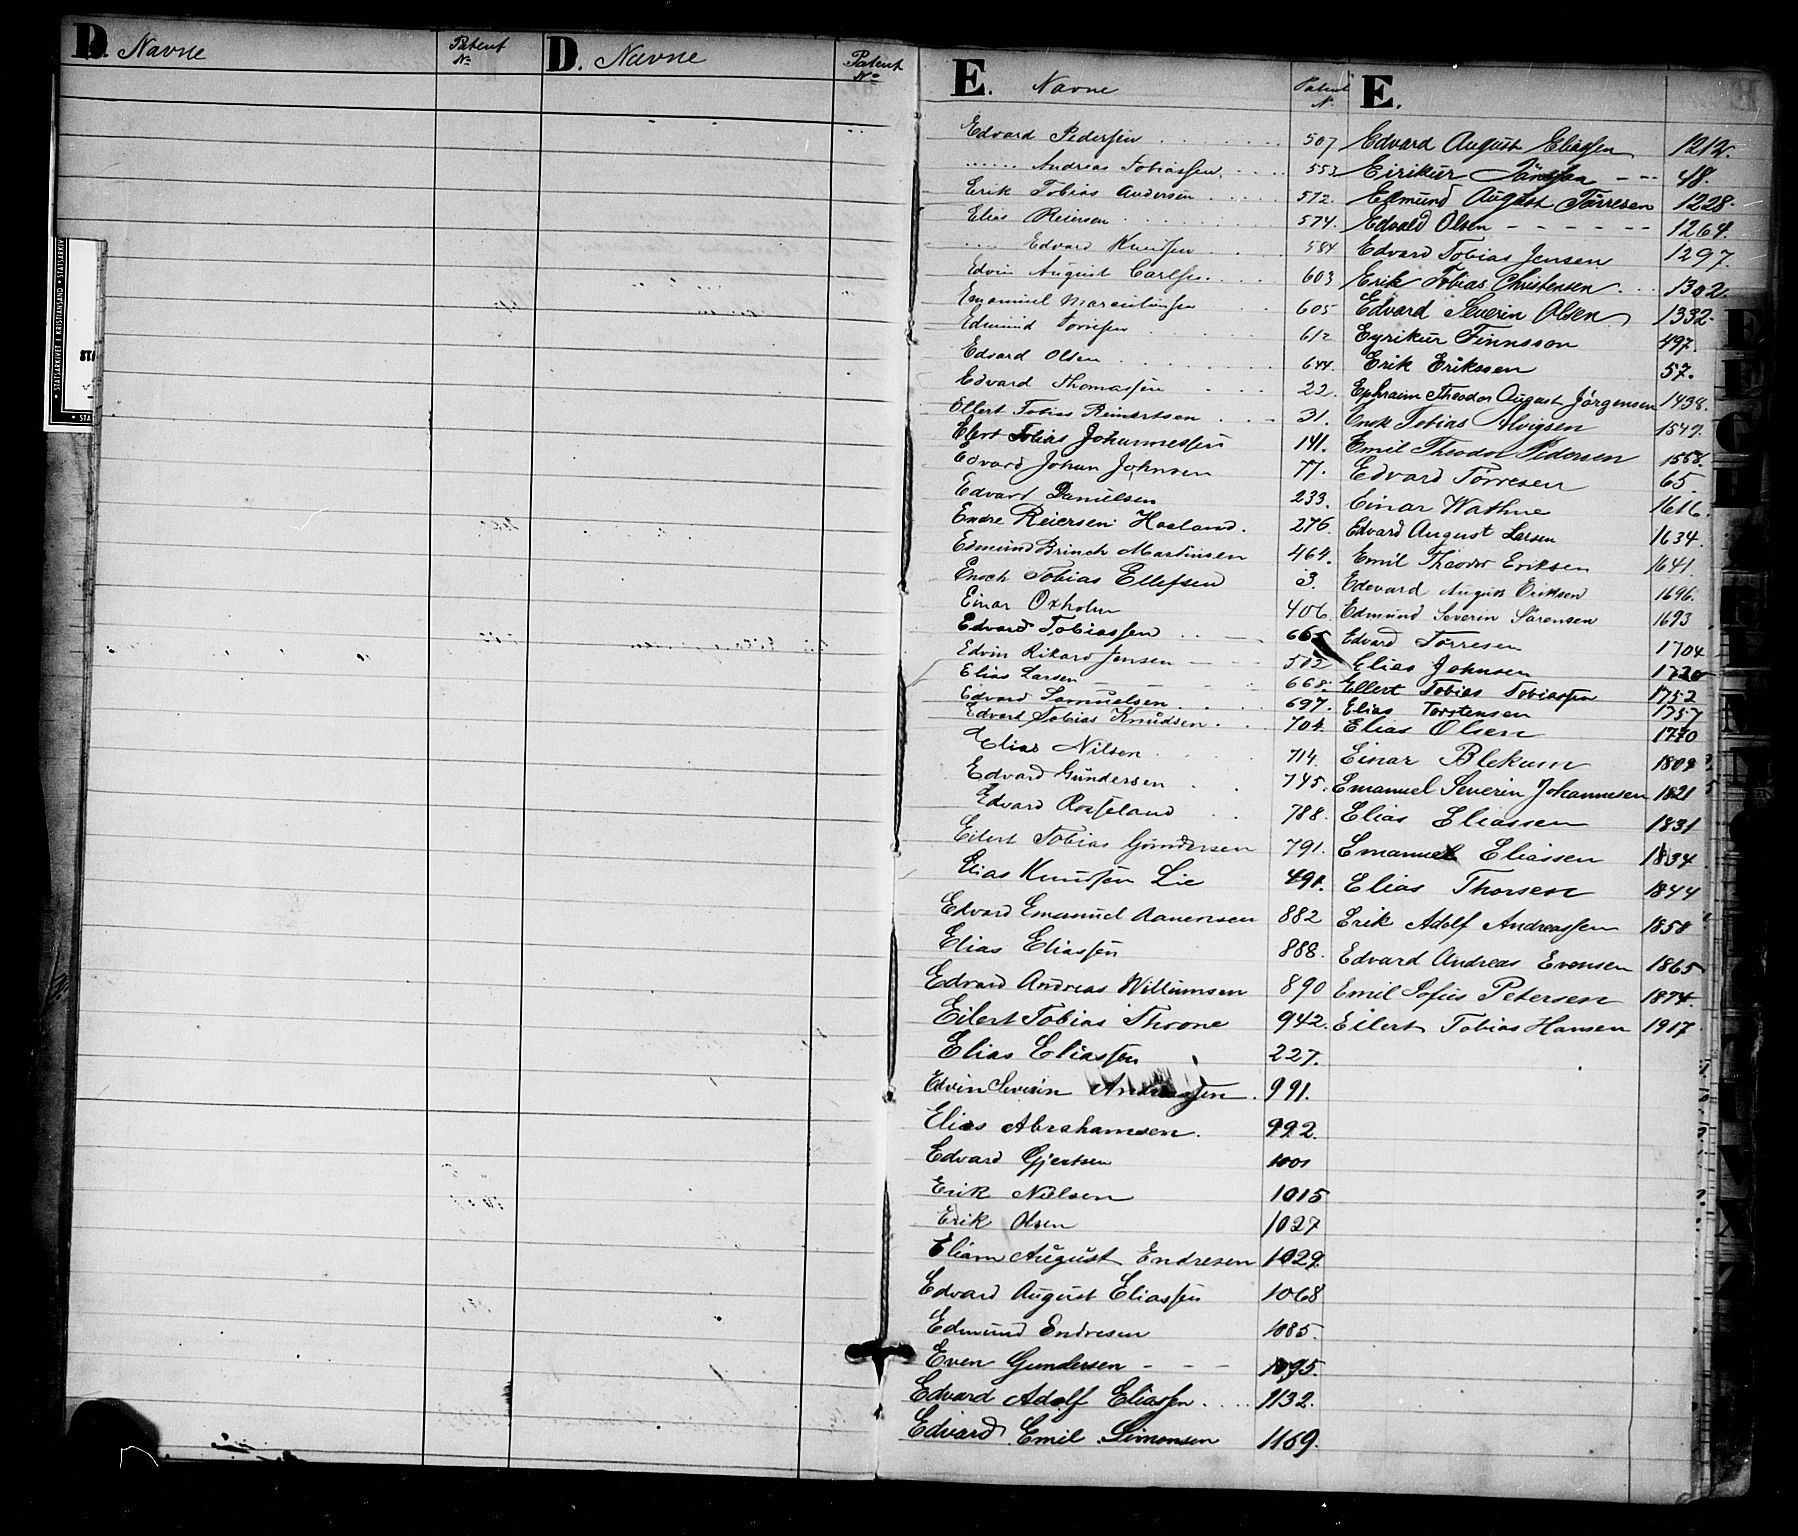 D. Navne Patent No D. Navne Patent No
E. Navne Patent N. E.
Edvard Pedersen 507
" Andreas Tobiassen 553
Erik Tobias Andersen 572
Elias Reiersen 574.
" Edvard Knudsen 584
Edvin August Carlsen 603
Emanuel 605
Edmund Torrisen 612
Edvard Olsen 644
Edvard Thomassen 22.
Ellert Tobias Reinertsen 31.
Elert Tobias Johannessen 141.
Edvard Johan Johnsen 77.
Edvart Danielsen 233.
Endre Reiersen Haaland. 276.
Edmund Brinch Martinsen 464.
Enoch Tobias Ellefsen 3.
Einar Oxholm 406.
Edvard Tobiassen 665
Edvin Rikard Jensen 502
Elias Larsen 668.
Edvard Samuelsen 697.
Edvart Tobias Knudsen 704.
Elias Nilsen 714.
Edvard Gundersen 745.
Edvard Rosseland 788.
Eilert Tobias Gundersen 791.
Elias Knudsen Lie 491.
Edvard Emanuel Aanensen 882
Elias Eliassen 888.
Edvard Andreas Willumsen 890
Eilert Tobias Throne 942.
Elias Eliassen 227.
Edvin Severin Andreassen 991.
Elias Abrahamsen. 992.
Edvard Gjertsen 1001
Erik Nielsen 1015
Erik Olsen 1027
Eliam August Endresen 1029.
Edvard August Eliassen 1068
Edmund Endresen 1085.
Even Gundersen 1095.
Edvard Adolf Eliassen 1132.
Edvard Emil Simonsen 1169.
Edvard August Eliassen 1212.
Eirikur 48.
Edmund August Törresen 1228.
Edvald Olsen 1264.
Edvard Tobias Jensen 1297.
Erik Tobias Christensen 1302.
Edvard Severin Olsen 1332.
Eyrikur Finnsson 497.
Erik Erikssen 57.
Ephraim Theodor August Jörgensen 1438.
Enok Tobias Alvigsen 1549.
Emil Theodor Pedersen 1558.
Edvard Torresen 65
Einar Wathne 1616.
Edvard August Larsen 1634.
Emil Theodor Eriksen 1641.
Edevard August Eriksen 1696.
Edmund Severin Sörensen 1693
Edvard Törresen 1704
Elias Johnsen 1720
Ellert Tobias Tobiassen 1752
Elias Torstensen 1757
Elias Olsen 1770
Einar Blekum 1809
Emanuel Severin Johannesen 1821
Elias Eliassen 1831
Emanuel Eliassen 1834
Elias Thorsen 1844
Erik Adolf Andreassen 1858
Edvard Andreas Evensen 1865
Emil Sofus Petersen 1874.
Eilert Tobias Hansen 1917
STATSARKIVET I KRISTIANSAND